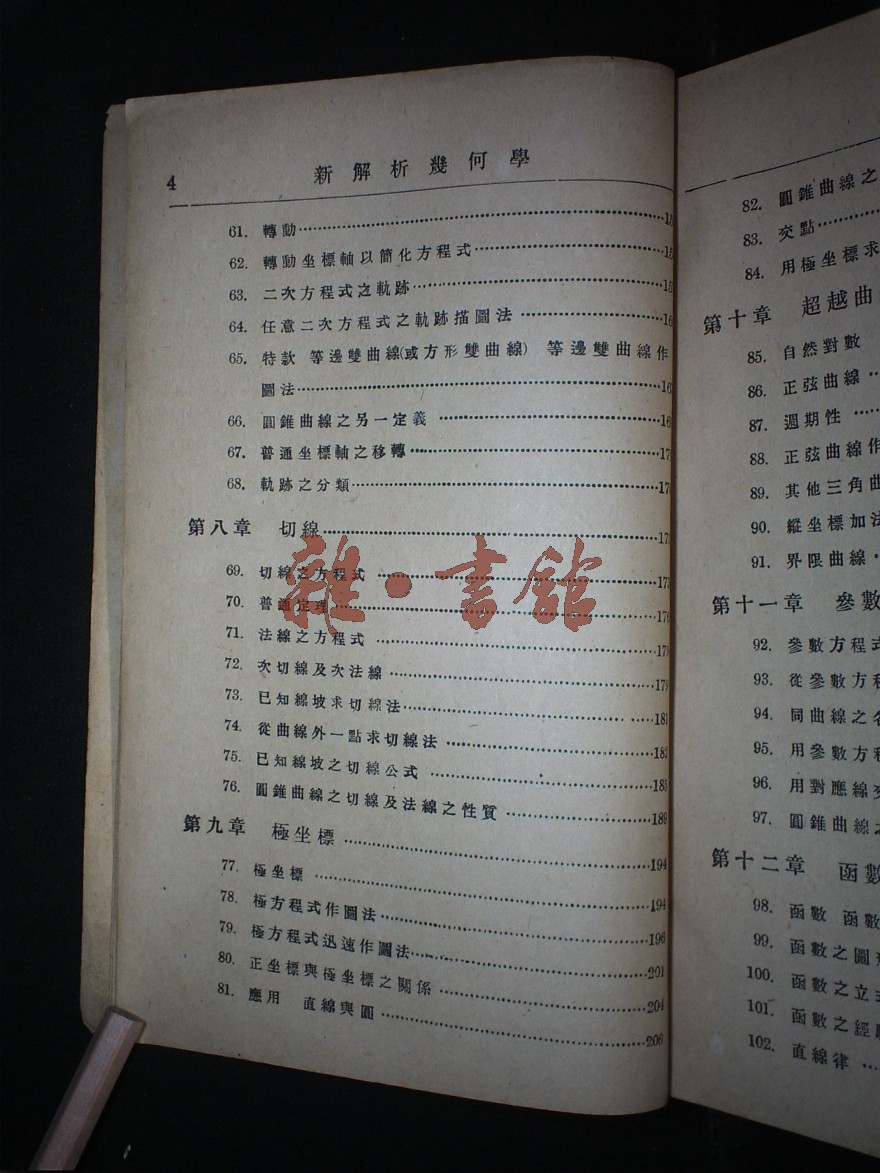 4 新解析幾何學
61. 轉動
62. 轉動坐標軸以簡化方程式
63. 二次方程式之軌跡
64. 任意二次方程式之軌跡描圖法
65. 特款 等邊雙曲線(或方形雙曲線) 等邊雙曲線作
圖法
66. 圓錐曲線之另一定義
67. 普通坐標軸之移轉
68. 軌跡之分類
第八章 切線
69. 切線之方程式
70. 普通定理
71. 法線之方程式
72. 次切線及次法線 179
73. 已知線坡求切線法 181
74. 從曲線外一點求切線法 183
75. 已知線坡之切線公式 185
76. 圓錐曲線之切線及法線之性質 189
第九章 極坐標 194
77. 極坐標 194
78. 極方程式作圖法 196
79. 極方程式迅速作圖法 201
80. 正坐標與極坐標之關係 204
81. 應用 直線與圓 206
雜·書館
82. 圓錐曲線之
83. 交點
84. 用極坐標求
第十章 超越曲
85. 自然對數
86. 正弦曲線
87. 週期性
88. 正弦曲線作
89. 其他三角曲
90. 縱坐標加法
91. 界限曲線
第十一章 參數
92. 參數方程式
93. 從參數方程
94. 同曲線之
95. 用參數方程
96. 用對應線交
97. 圓錐曲線之
第十二章 函數
98. 函數 函數
99. 函數之圖
100. 函數之立
101. 函數之經
102. 直線律